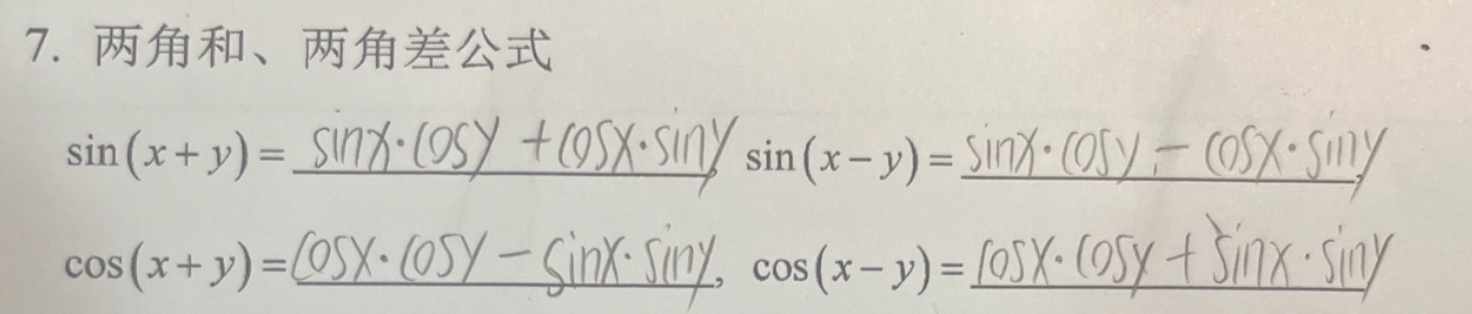 7. 两角和、两角差公式
sin(x+y)= sinx·cosy+cosx·siny, sin(x−y)= sinx·cosy−cosx·siny,
cos(x+y)= cosx·cosy−sinx·siny, cos(x−y)= cosx·cosy+sinx·siny